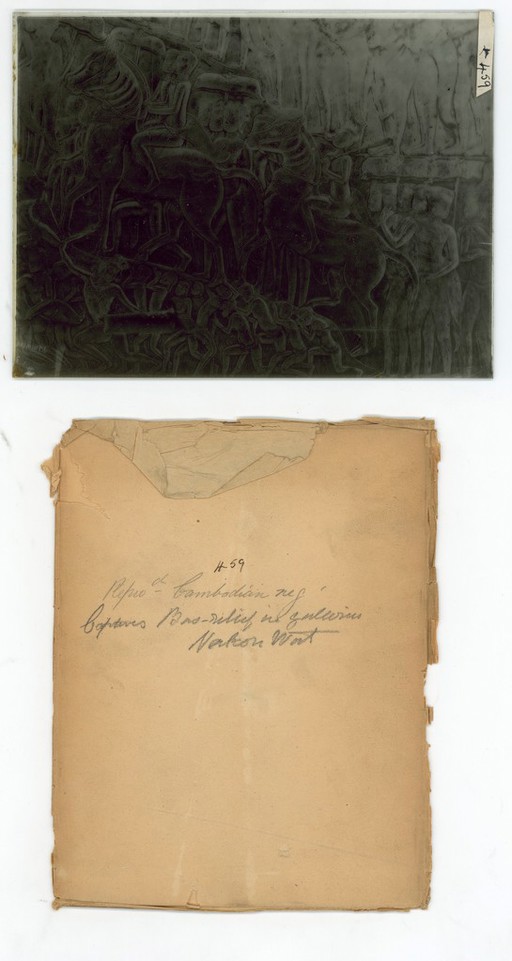 # 459
# 59
Repro d. Cambodian neg
Bas-relief in galleries
Nakon Wat